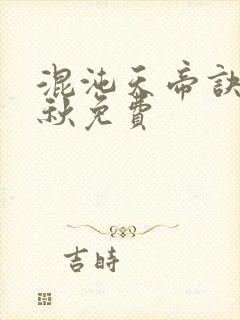 混沌天帝訣
秋免費
吉時